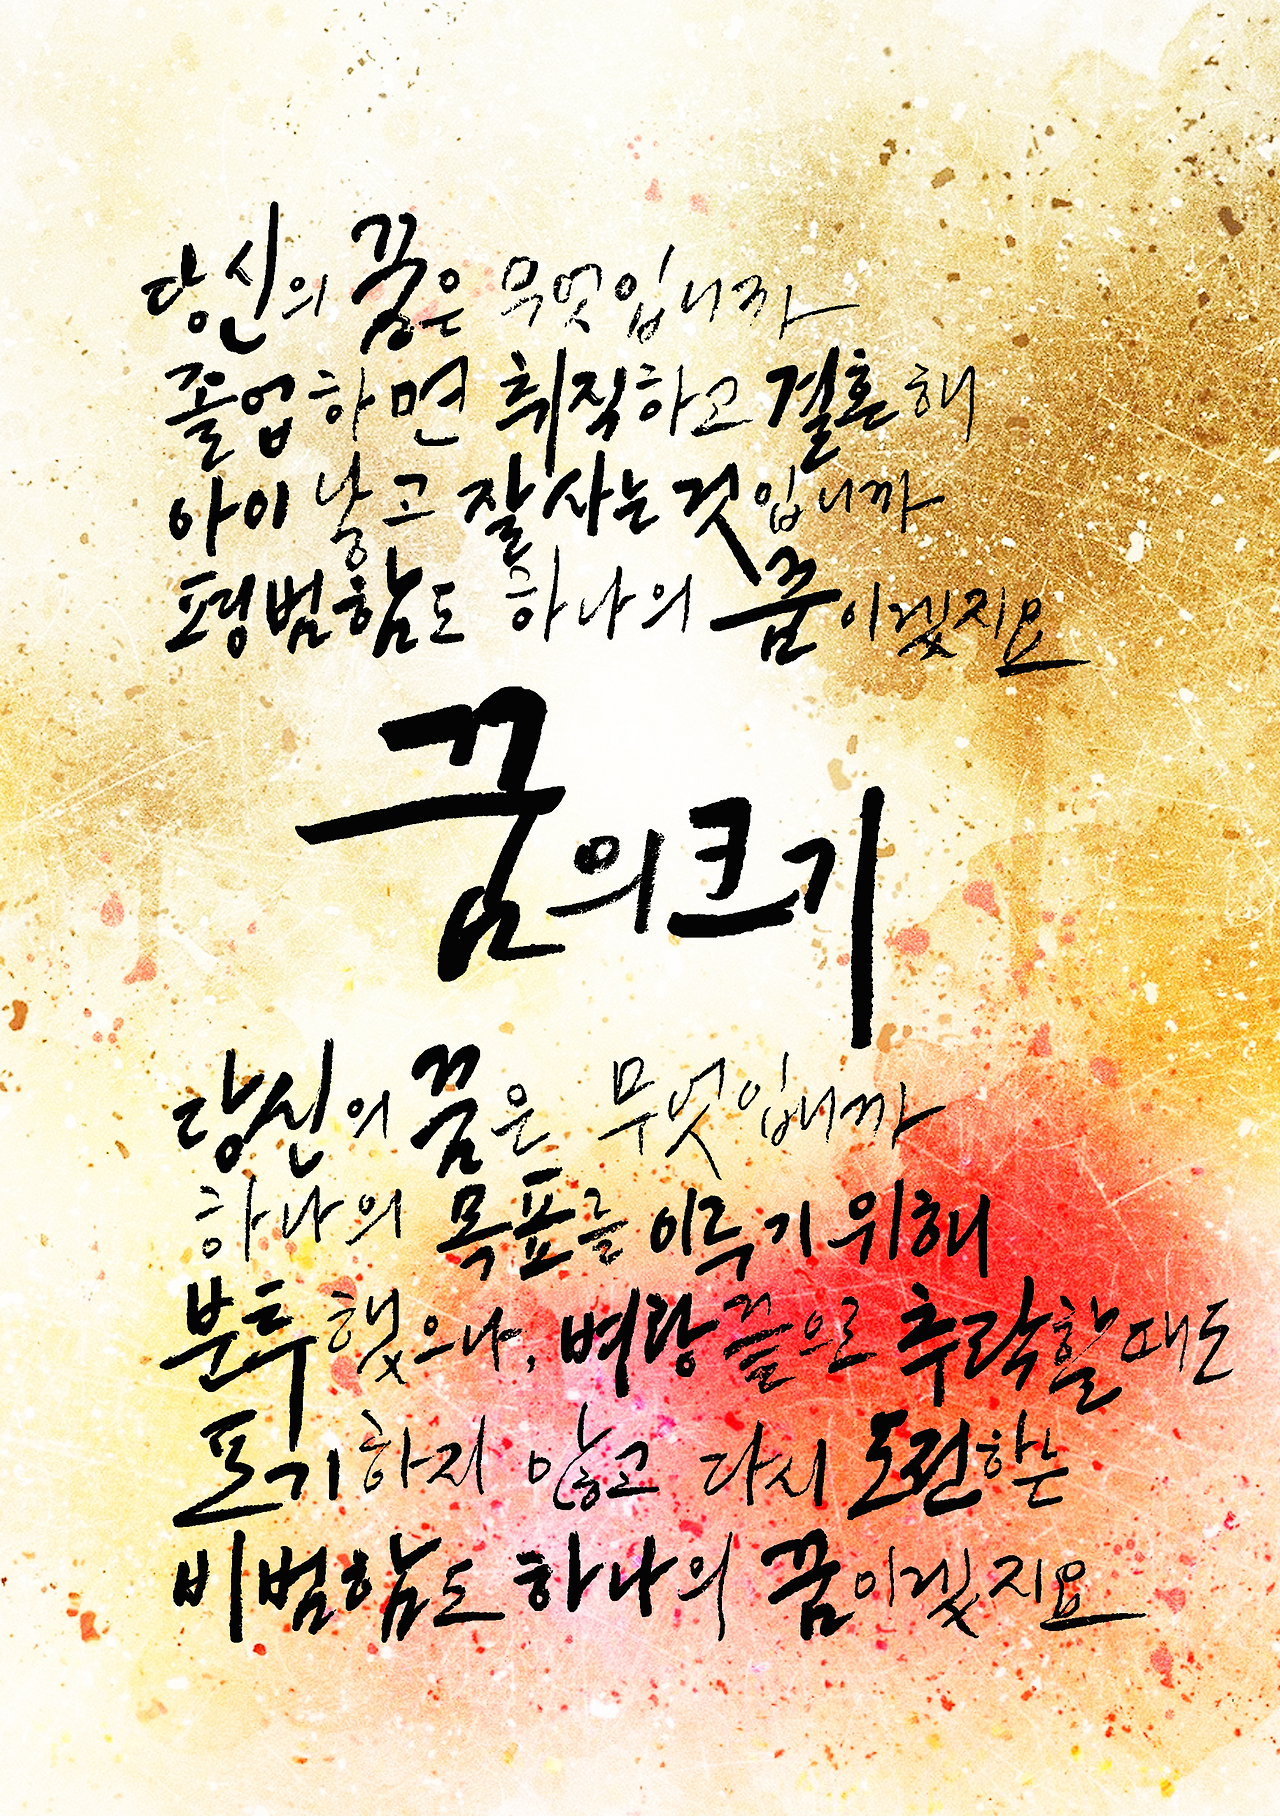 당신의 꿈은 무엇입니까
졸업하면 취직하고 결혼해
아이 낳고 잘 사는 것입니까
평범함도 하나의 꿈이겠지요
꿈의 크기
당신의 꿈은 무엇입니까
하나의 목표를 이루기 위해
분투했으나, 벼랑 끝으로 추락할 때도
포기하지 않고 다시 도전하는
비범함도 하나의 꿈이겠지요